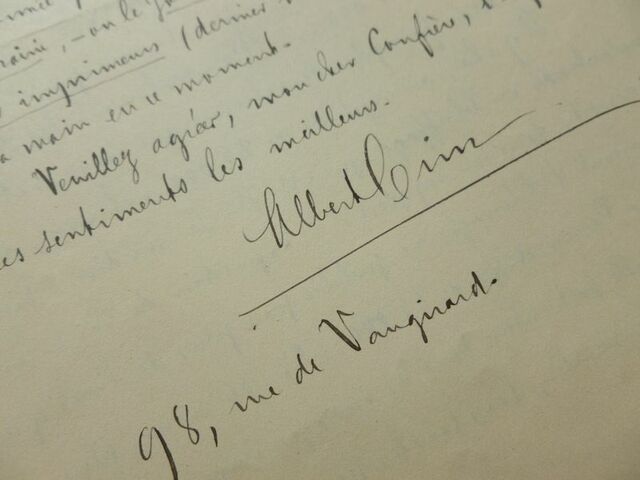 - ou le
imprimeurs (dernier
main en ce moment.
Veuillez agréer, mon cher Confrère,
sentiments les meilleurs.
Albert Cim
98, rue de Vaugirard.